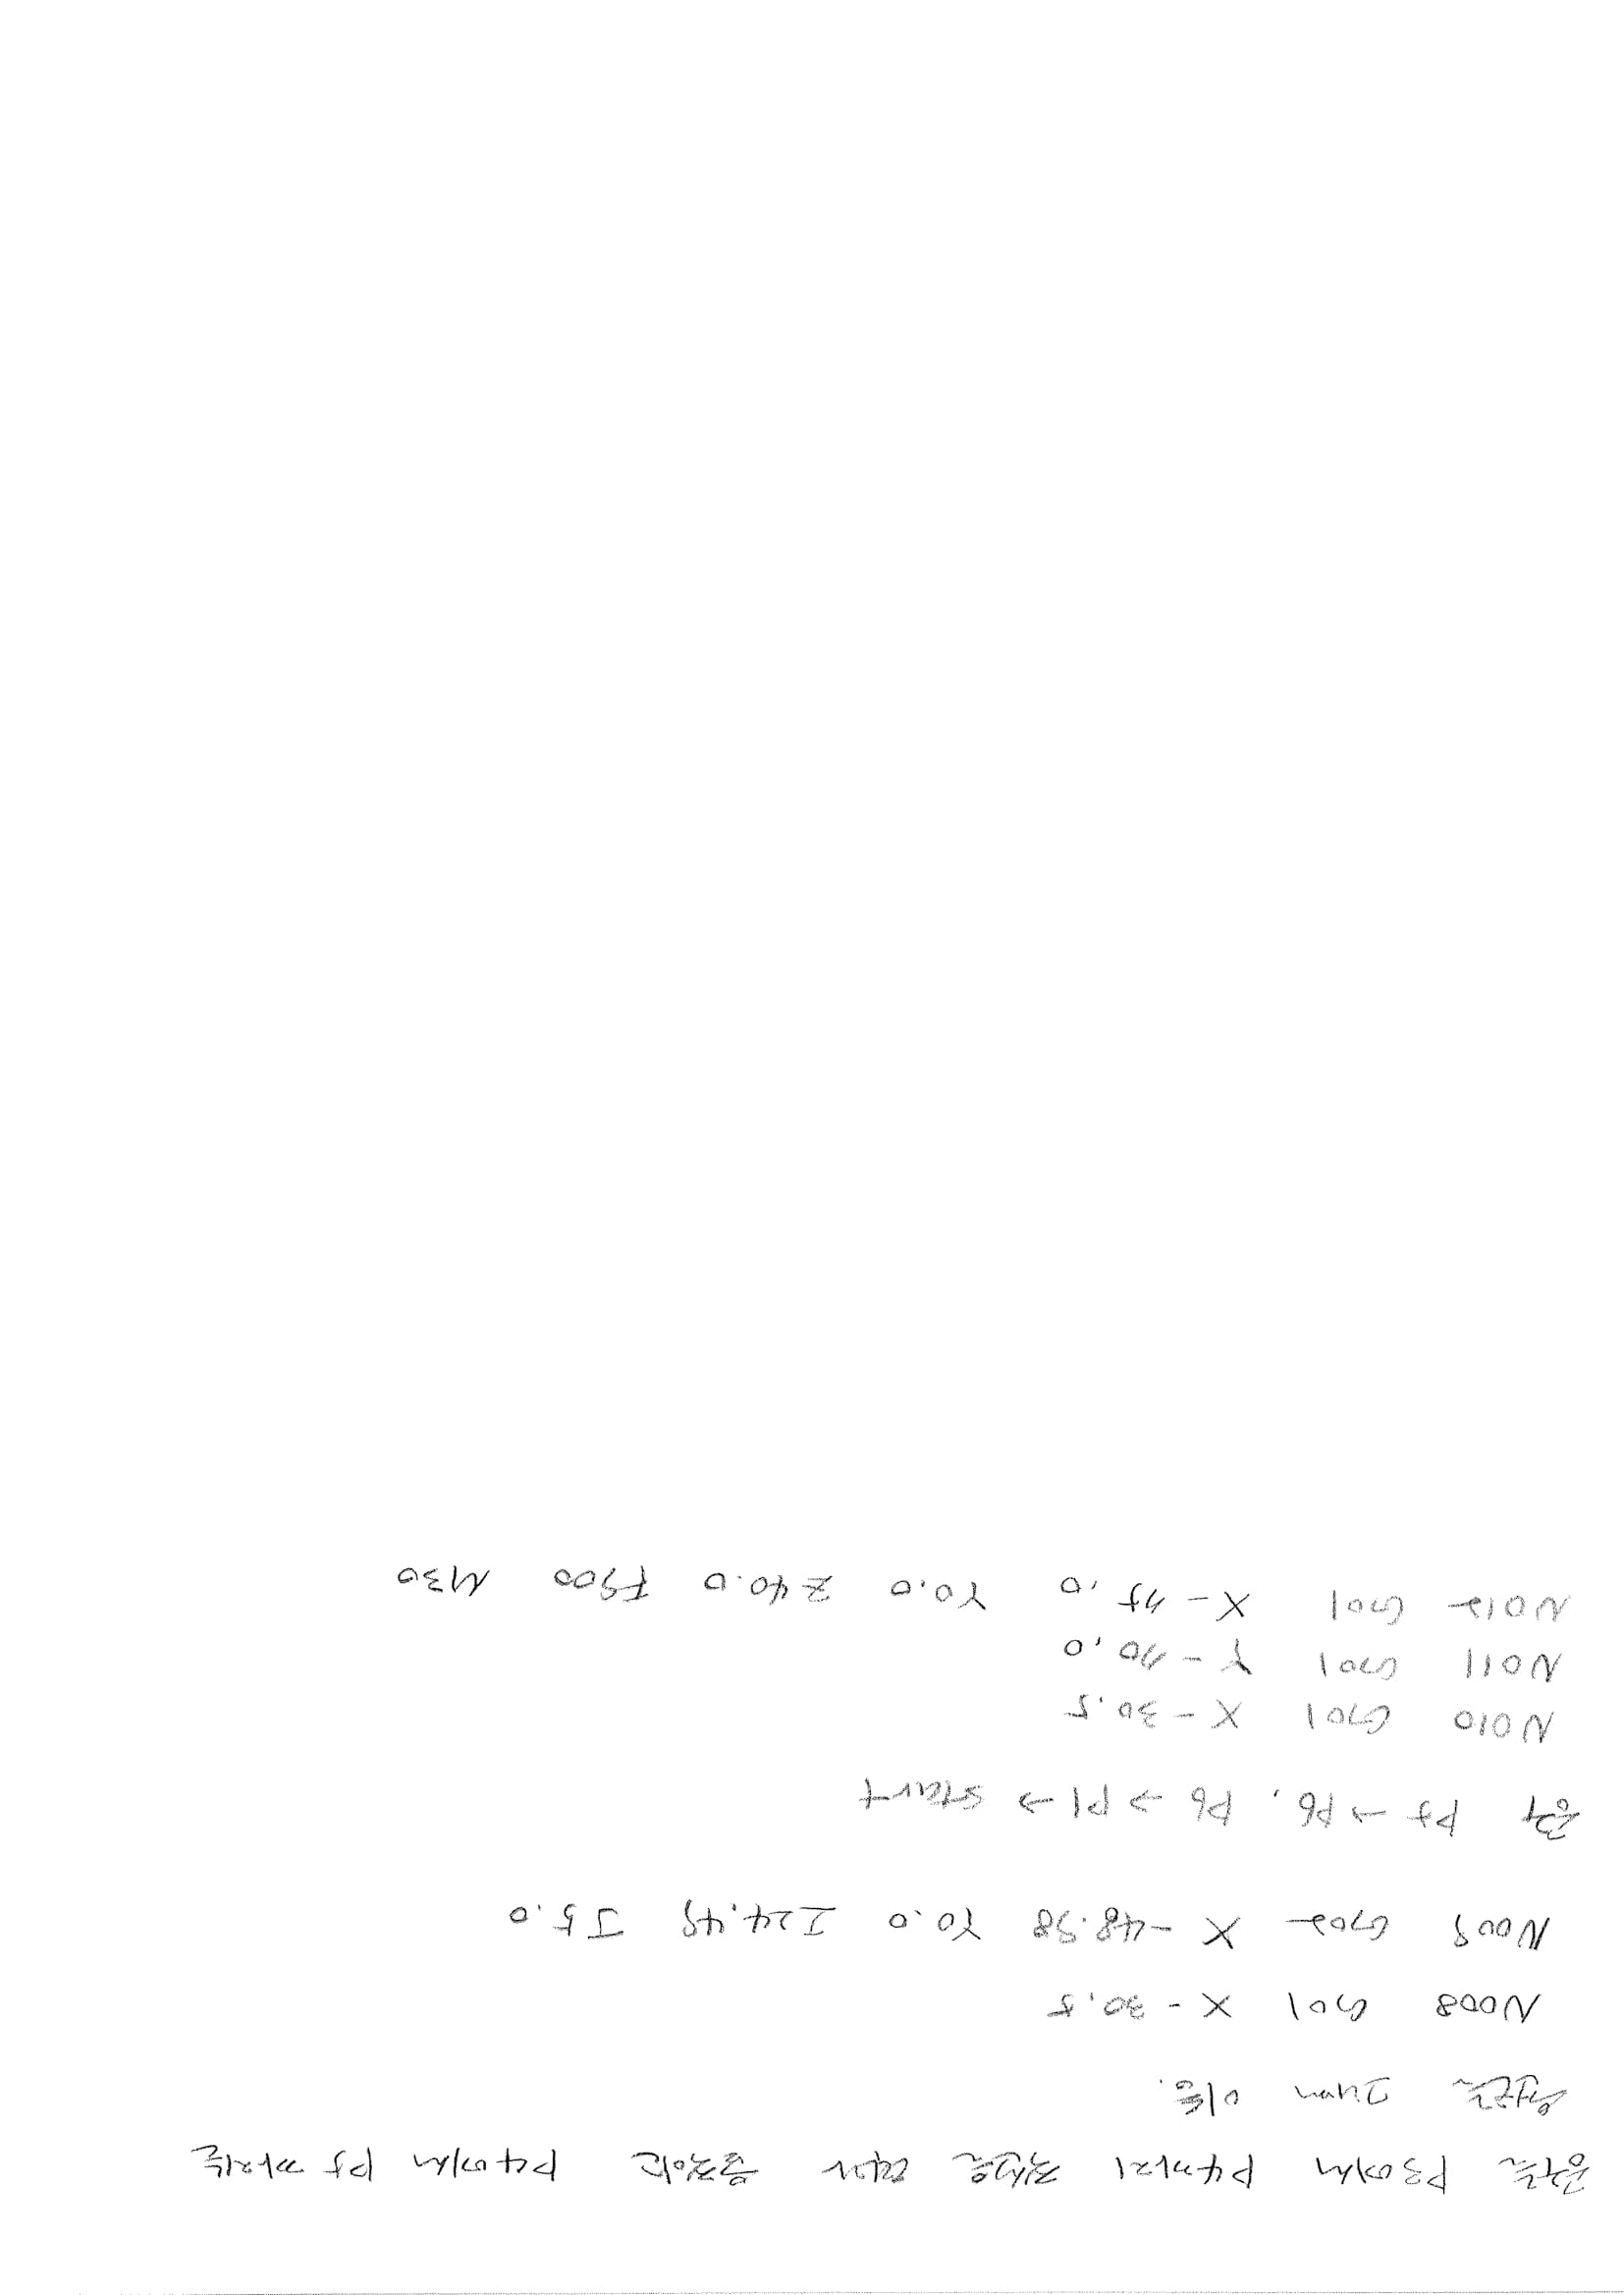 공구는 P3에서 P4까지 직선을 따라 움직이고 P4에서 P5 까지는
원호를 그리며 이동.
N008 G01 X - 30.5
N009 G02 X -48.98 Y0.0 I24.49 J5.0
공구 P5 → P6, P6 → P1 → start
N010 G01 X - 30.5
N011 G01 Y - 70.0
N012 G01 X - 75.0 Y0.0 Z40.0 F900 M30